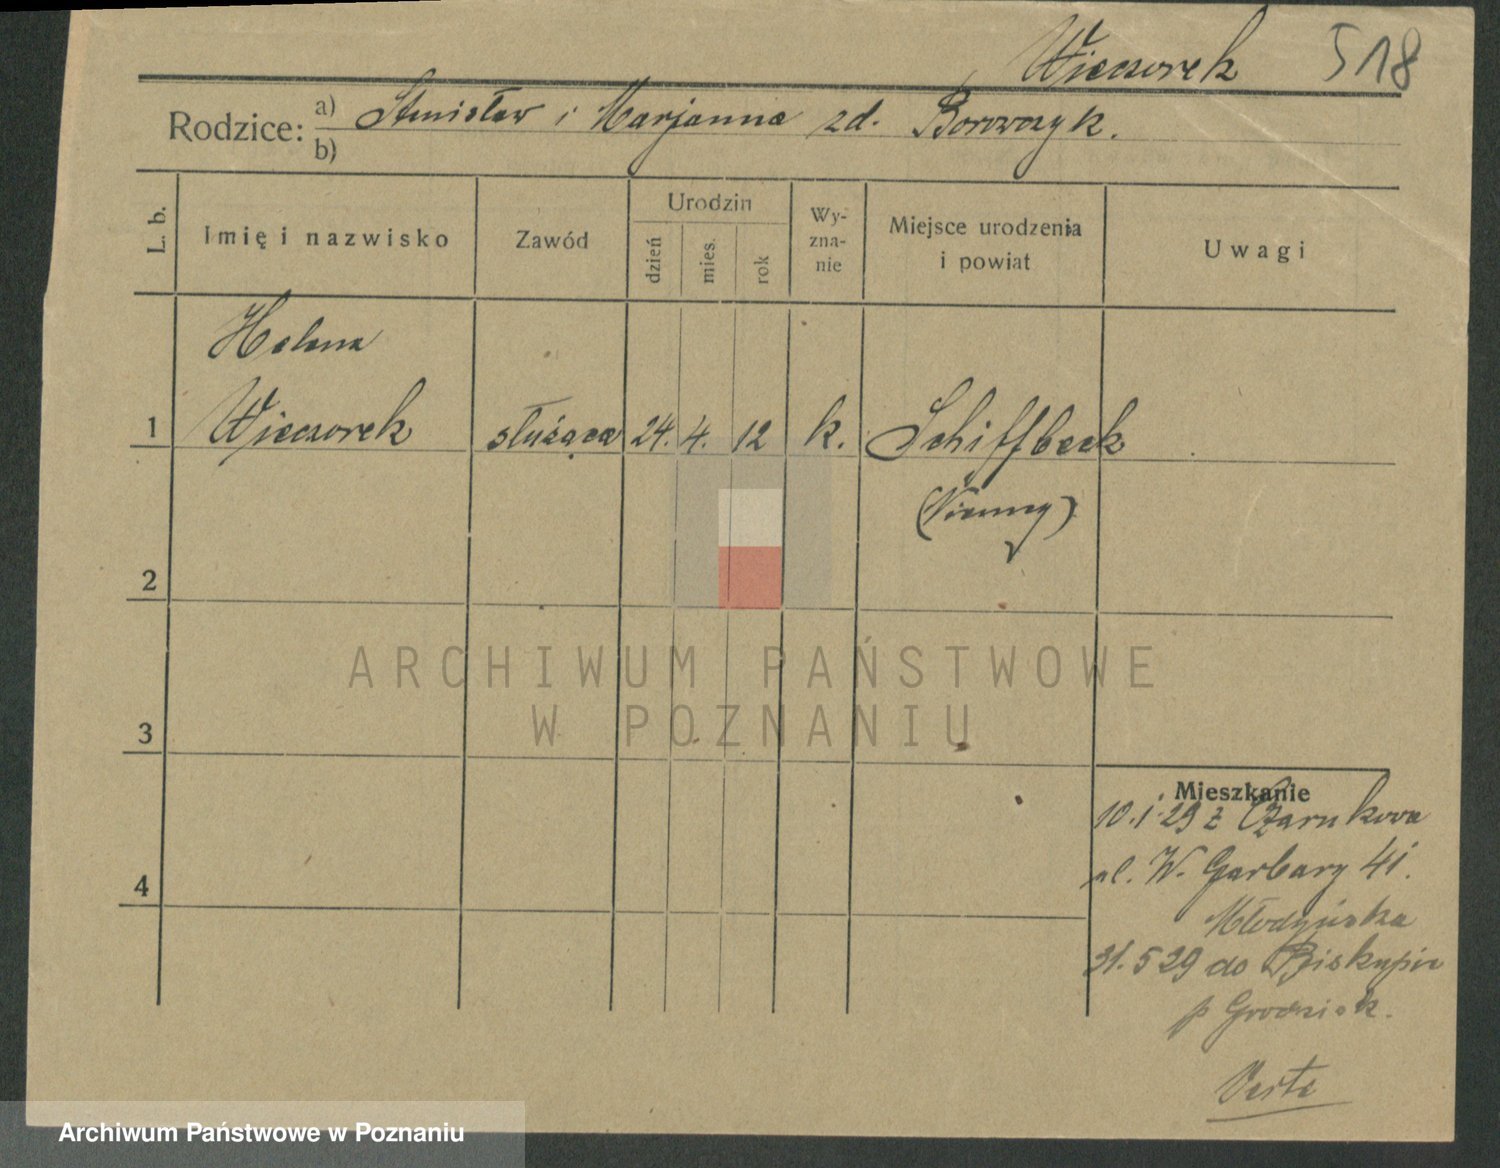 Wieczorek 518
Rodzice: a) Stanisław i Marjanna zd. Borowczyk.
b)
L. b.
Imię i nazwisko
Zawód
Urodzin
dzień
mies.
rok
Wy-
zna-
nie
Miejsce urodzenia
i powiat
Uwagi
Helena
1 Wieczorek służąca 24. 4. 12 k. Schiffbeck
(Niemcy)
2
3
4
ARCHIWUM PAŃSTWOWE
W POZNANIU
Mieszkanie
10.1.29 z Czarnkowa
ul. W. Garbary 41.
Młodyńska
31.5 29 do Biskupic
p Grodzisk.
Verte
Archiwum Państwowe w Poznaniu